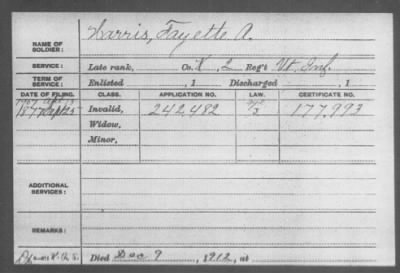 NAME OF SOLDIER: Harris, Fayette A.
SERVICE: Late rank, Co. K, 2 Reg't Vt. Inf.
TERM OF SERVICE: Enlisted , 1 Discharged , 1
DATE OF FILING. CLASS. APPLICATION NO. LAW. CERTIFICATE NO.
1877 Invalid, 242,482 177,993
Widow,
Minor,
ADDITIONAL SERVICES:
REMARKS:
Died Dec 9, 1912, at